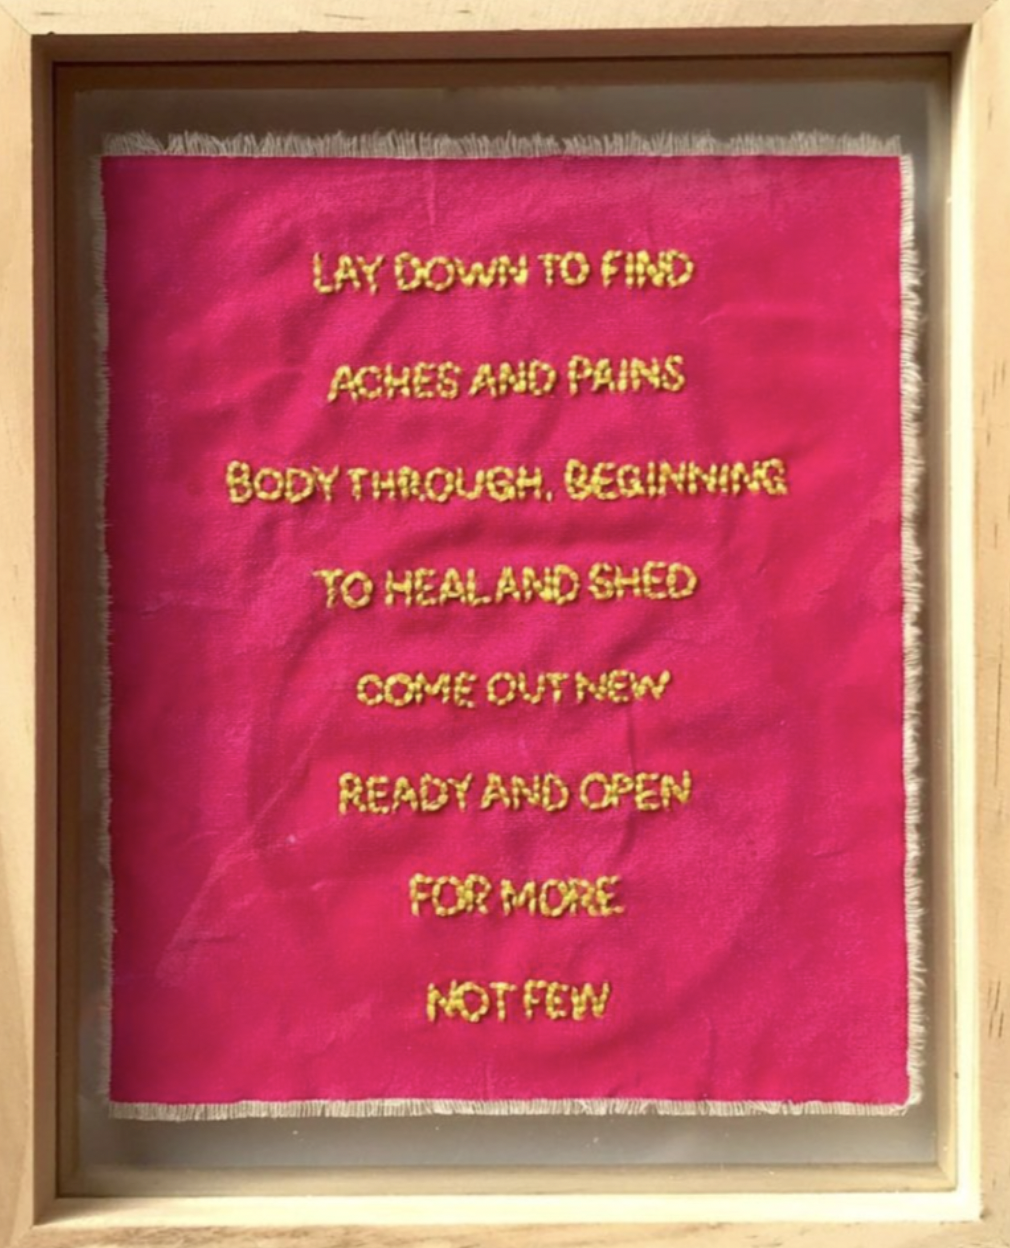 LAY DOWN TO FIND
ACHES AND PAINS
BODY THROUGH, BEGINNING
TO HEAL AND SHED
COME OUT NEW
READY AND OPEN
FOR MORE
NOT FEW